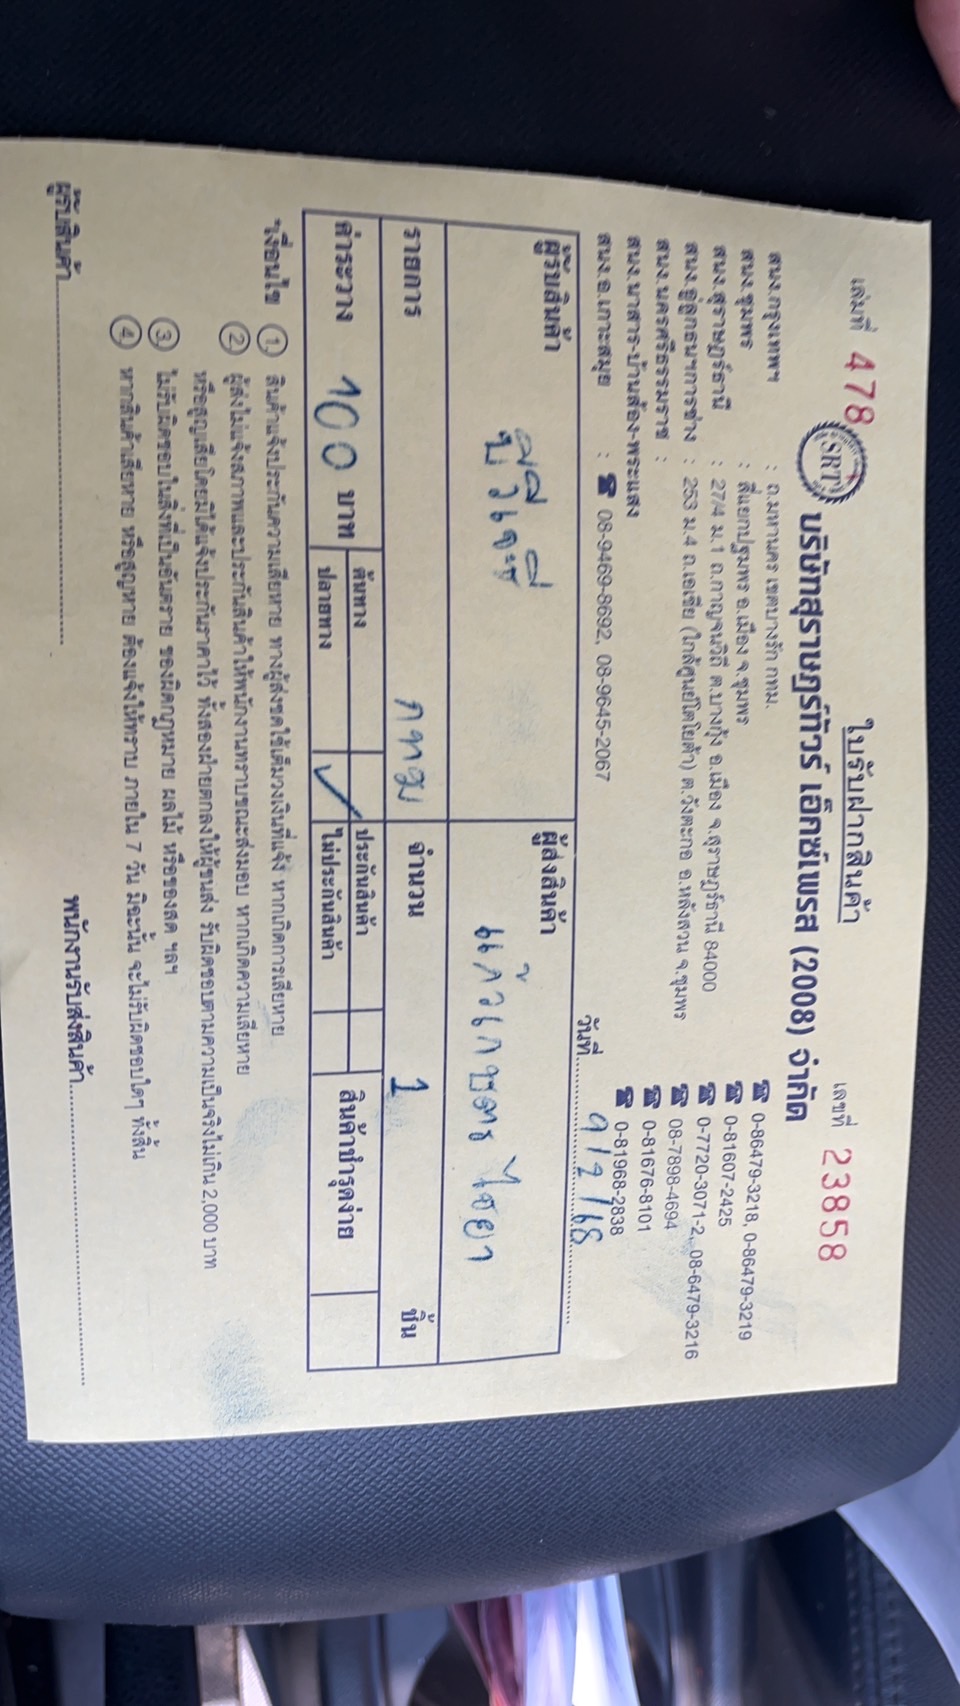 เล่มที่ 478 ใบรับฝากสินค้า เลขที่ 23858
SRT บริษัทสุราษฎร์ทัวร์ เอ็กซ์เพรส (2008) จำกัด
สนง.กรุงเทพฯ : ถ.มหานคร เขตบางรัก กทม. ☎ 0-86479-3218, 0-86479-3219
สนง.ชุมพร : สี่แยกปฐมพร อ.เมือง จ.ชุมพร ☎ 0-81607-2425
สนง.สุราษฎร์ธานี : 27/4 ม.1 ถ.กาญจนวิถี ต.บางกุ้ง อ.เมือง จ.สุราษฎร์ธานี 84000 ☎ 0-7720-3071-2, 08-6479-3216
สนง.อู่ลูกธนฯการช่าง : 253 ม.4 ถ.เอเซีย (ใกล้ศูนย์โตโยต้า) ต.วังตะกอ อ.หลังสวน จ.ชุมพร ☎ 08-7898-4694
สนง.นครศรีธรรมราช : ☎ 0-81676-8101
สนง.นาสาร-บ้านส้อง-พระแสง ☎ 0-81968-2838
สนง.อ.เกาะสมุย : ☎ 08-9469-8692, 08-9645-2067
วันที่ 9/2/68
ผู้รับสินค้า ผู้ส่งสินค้า
แก้วเกษตร ไชยา
รายการ กทม จำนวน 1 ชิ้น
ค่าระวาง 100 บาท ต้นทาง ประกันสินค้า สินค้าชำรุดง่าย
ปลายทาง ✓ ไม่ประกันสินค้า
*เงื่อนไข ① สินค้าแจ้งประกันความเสียหาย ทางผู้ส่งชดใช้เต็มวงเงินที่แจ้ง หากเกิดการเสียหาย
② ผู้ส่งไม่แจ้งสภาพและประกันสินค้าให้พนักงานทราบขณะส่งมอบ หากเกิดความเสียหาย
หรือสูญเสียโดยมิได้แจ้งประกันราคาไว้ ทั้งสองฝ่ายตกลงให้ผู้ขนส่ง รับผิดชอบตามความเป็นจริงไม่เกิน 2,000 บาท
③ ไม่รับผิดชอบในสิ่งที่เป็นอันตราย ของผิดกฎหมาย ผลไม้ หรือของสด ฯลฯ
④ หากสินค้าเสียหาย หรือสูญหาย ต้องแจ้งให้ทราบ ภายใน 7 วัน มิฉะนั้น จะไม่รับผิดชอบใดๆ ทั้งสิ้น
ผู้รับสินค้า พนักงานรับส่งสินค้า